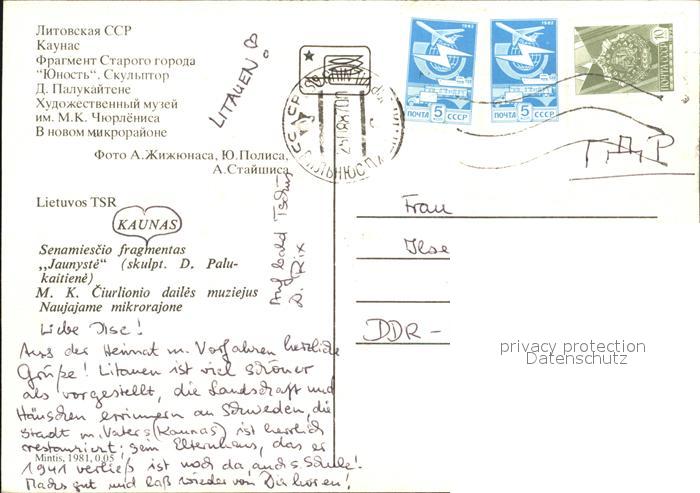 Литовская ССР
Каунас
Фрагмент Старого города
"Юность". Скульптор
Д. Палукайтене
Художественный музей
им. М.К. Чюрлёниса
В новом микрорайоне
Фото А.Жижюнаса, Ю.Полиса,
А.Стайшиса
Lietuvos TSR
KAUNAS
Senamiesčio fragmentas
„Jaunystė" (skulpt. D. Palu-
kaitienė)
M. K. Čiurlionio dailės muziejus
Naujajame mikrorajone
Liebe Ilse!
Aus der Heimat m. Vorfahren herzliche
Grüße! Litauen ist viel schöner
als vorgestellt, die Landschaft und
Häuschen erinnern an Schweden, die
Stadt m. Vaters (Kaunas) ist herrlich
restauriert; sein Elternhaus, das er
Mintis, 1981, 0,05
1941 verließ ist noch da, auch s. Schule!
Machs gut und laß wieder von Dir hören!
Auf bald Tschüß
D. Rix
LITAUEN!
1982
5
ПОЧТА СССР
1982
5
ПОЧТА СССР
10
ПОЧТА СССР
СССР
ВИЛЬНЮС
ГДР
Frau
Ilse
DDR -
privacy protection
Datenschutz